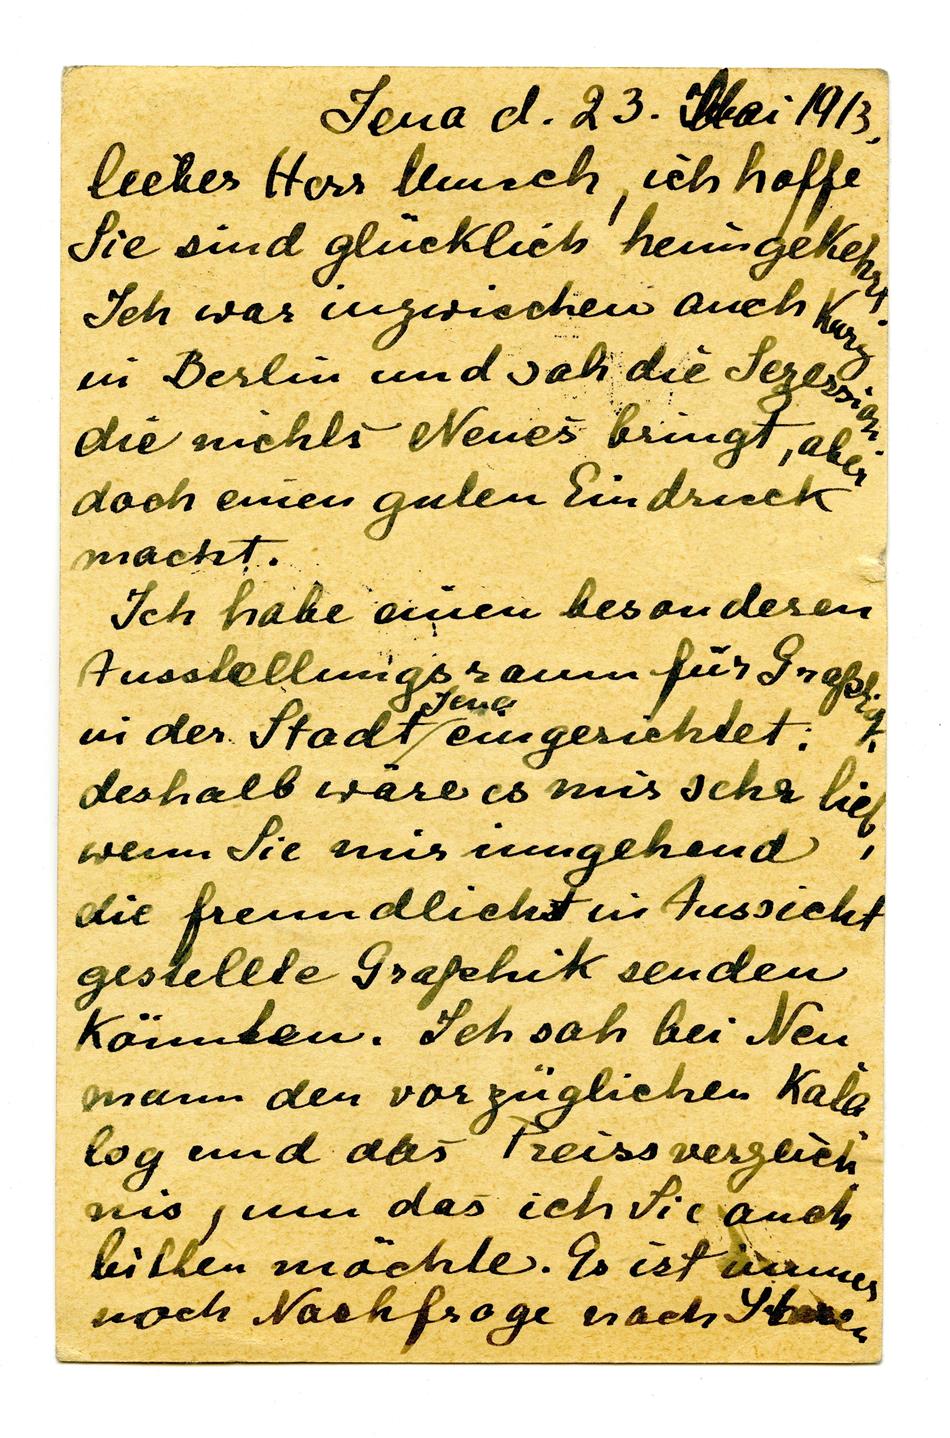 Jena d. 23. Mai 1913.
lieber Herr Munch, ich hoffe
Sie sind glücklich heimgekehrt.
Ich war inzwischen auch kurz
in Berlin und sah die Sezession
die nichts Neues bringt, aber
doch einen guten Eindruck
macht.
Ich habe einen besonderen
Ausstellungsraum für Graphik
in der Stadt Jena eingerichtet:
deshalb wäre es mir sehr lieb,
wenn Sie mir umgehend
die freundlichst in Aussicht
gestellte Graphik senden
könnten. Ich sah bei Neu
mann den vorzüglichen Kata
log und das Preissverzeich
nis, um das ich Sie auch
bitten möchte. Es ist immer
noch Nachfrage nach Ihren